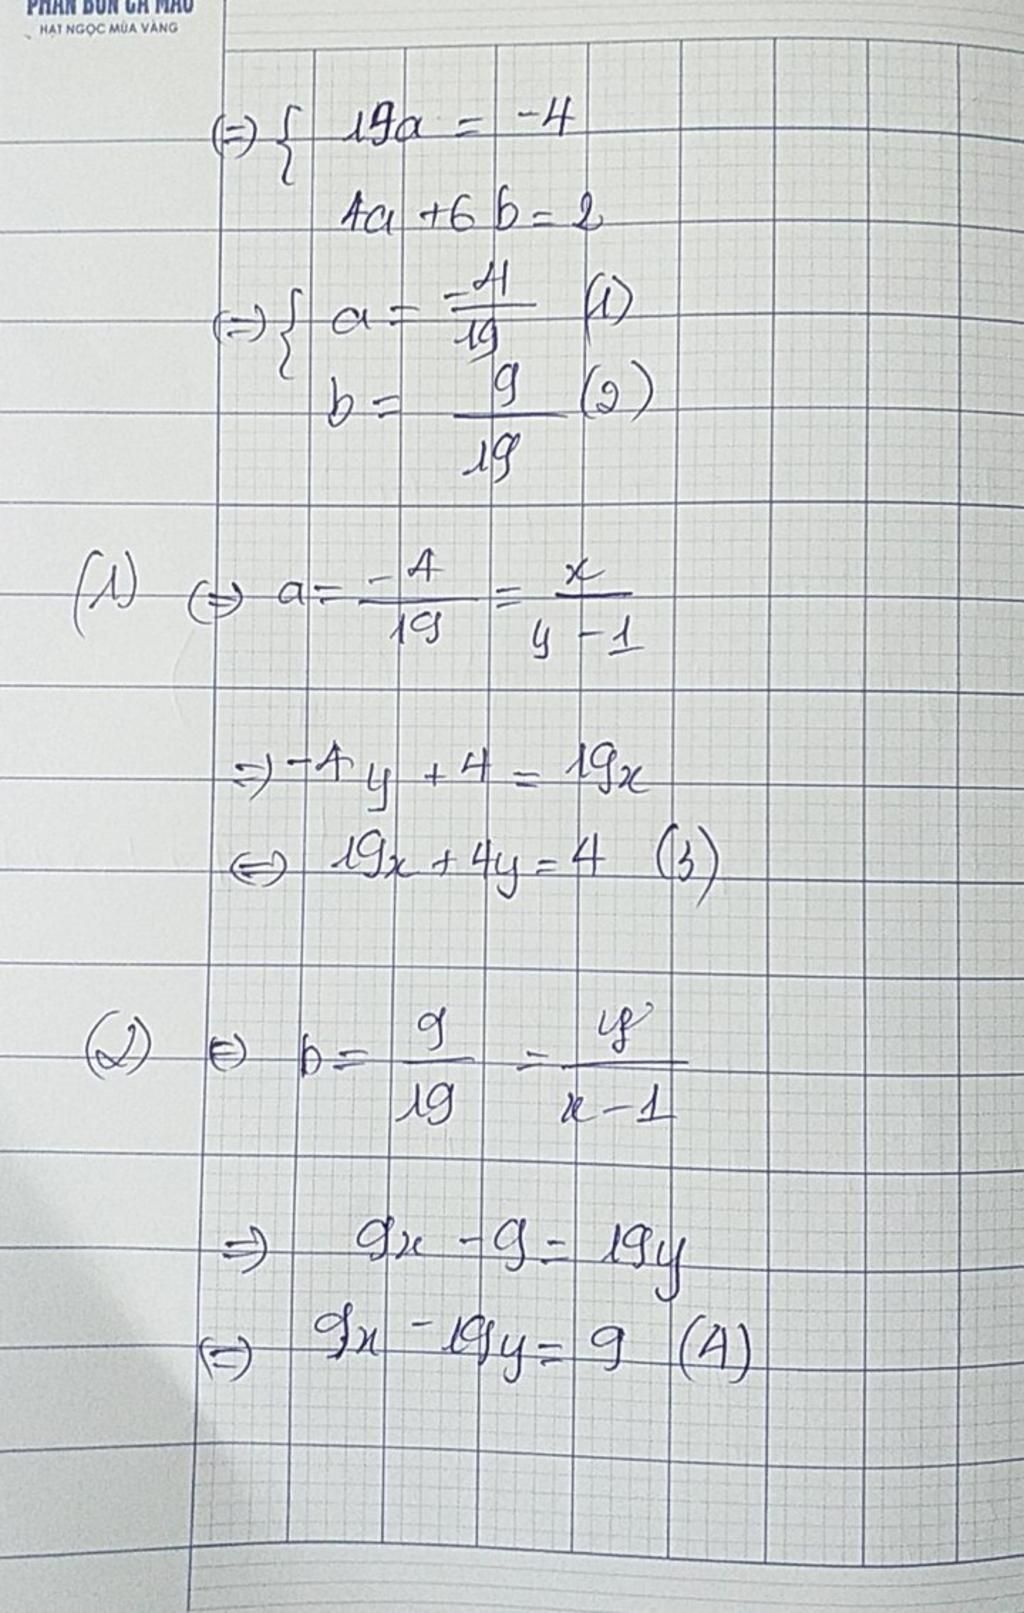 PHÂN BÓN CÀ MAU
HẠT NGỌC MÙA VÀNG
(=) { 19a = -4
4a + 6b = 2
(=) { a = -4/19 (1)
b = 9/19 (2)
(1) (=) a = -4/19 = x/(y - 1)
=) -4y + 4 = 19x
(=) 19x + 4y = 4 (3)
(2) (=) b = 9/19 = y/(x - 1)
=) 9x - 9 = 19y
(=) 9x - 19y = 9 (4)